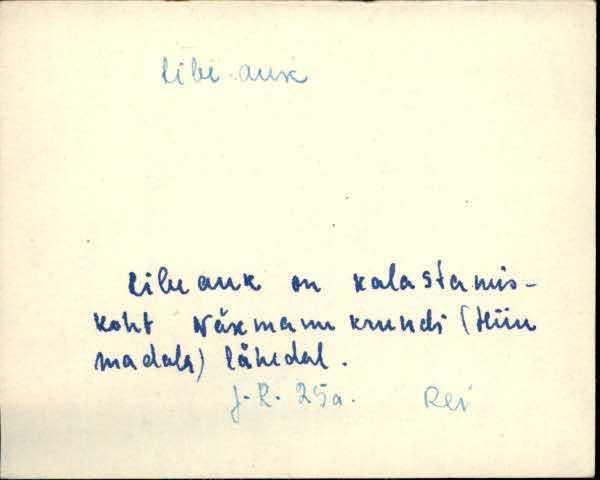 Libe auk
Libe auk on kalastamis-
koht Näkmann krundi (Hiiu
madala) lähedal.
J. R. 25a. Rei